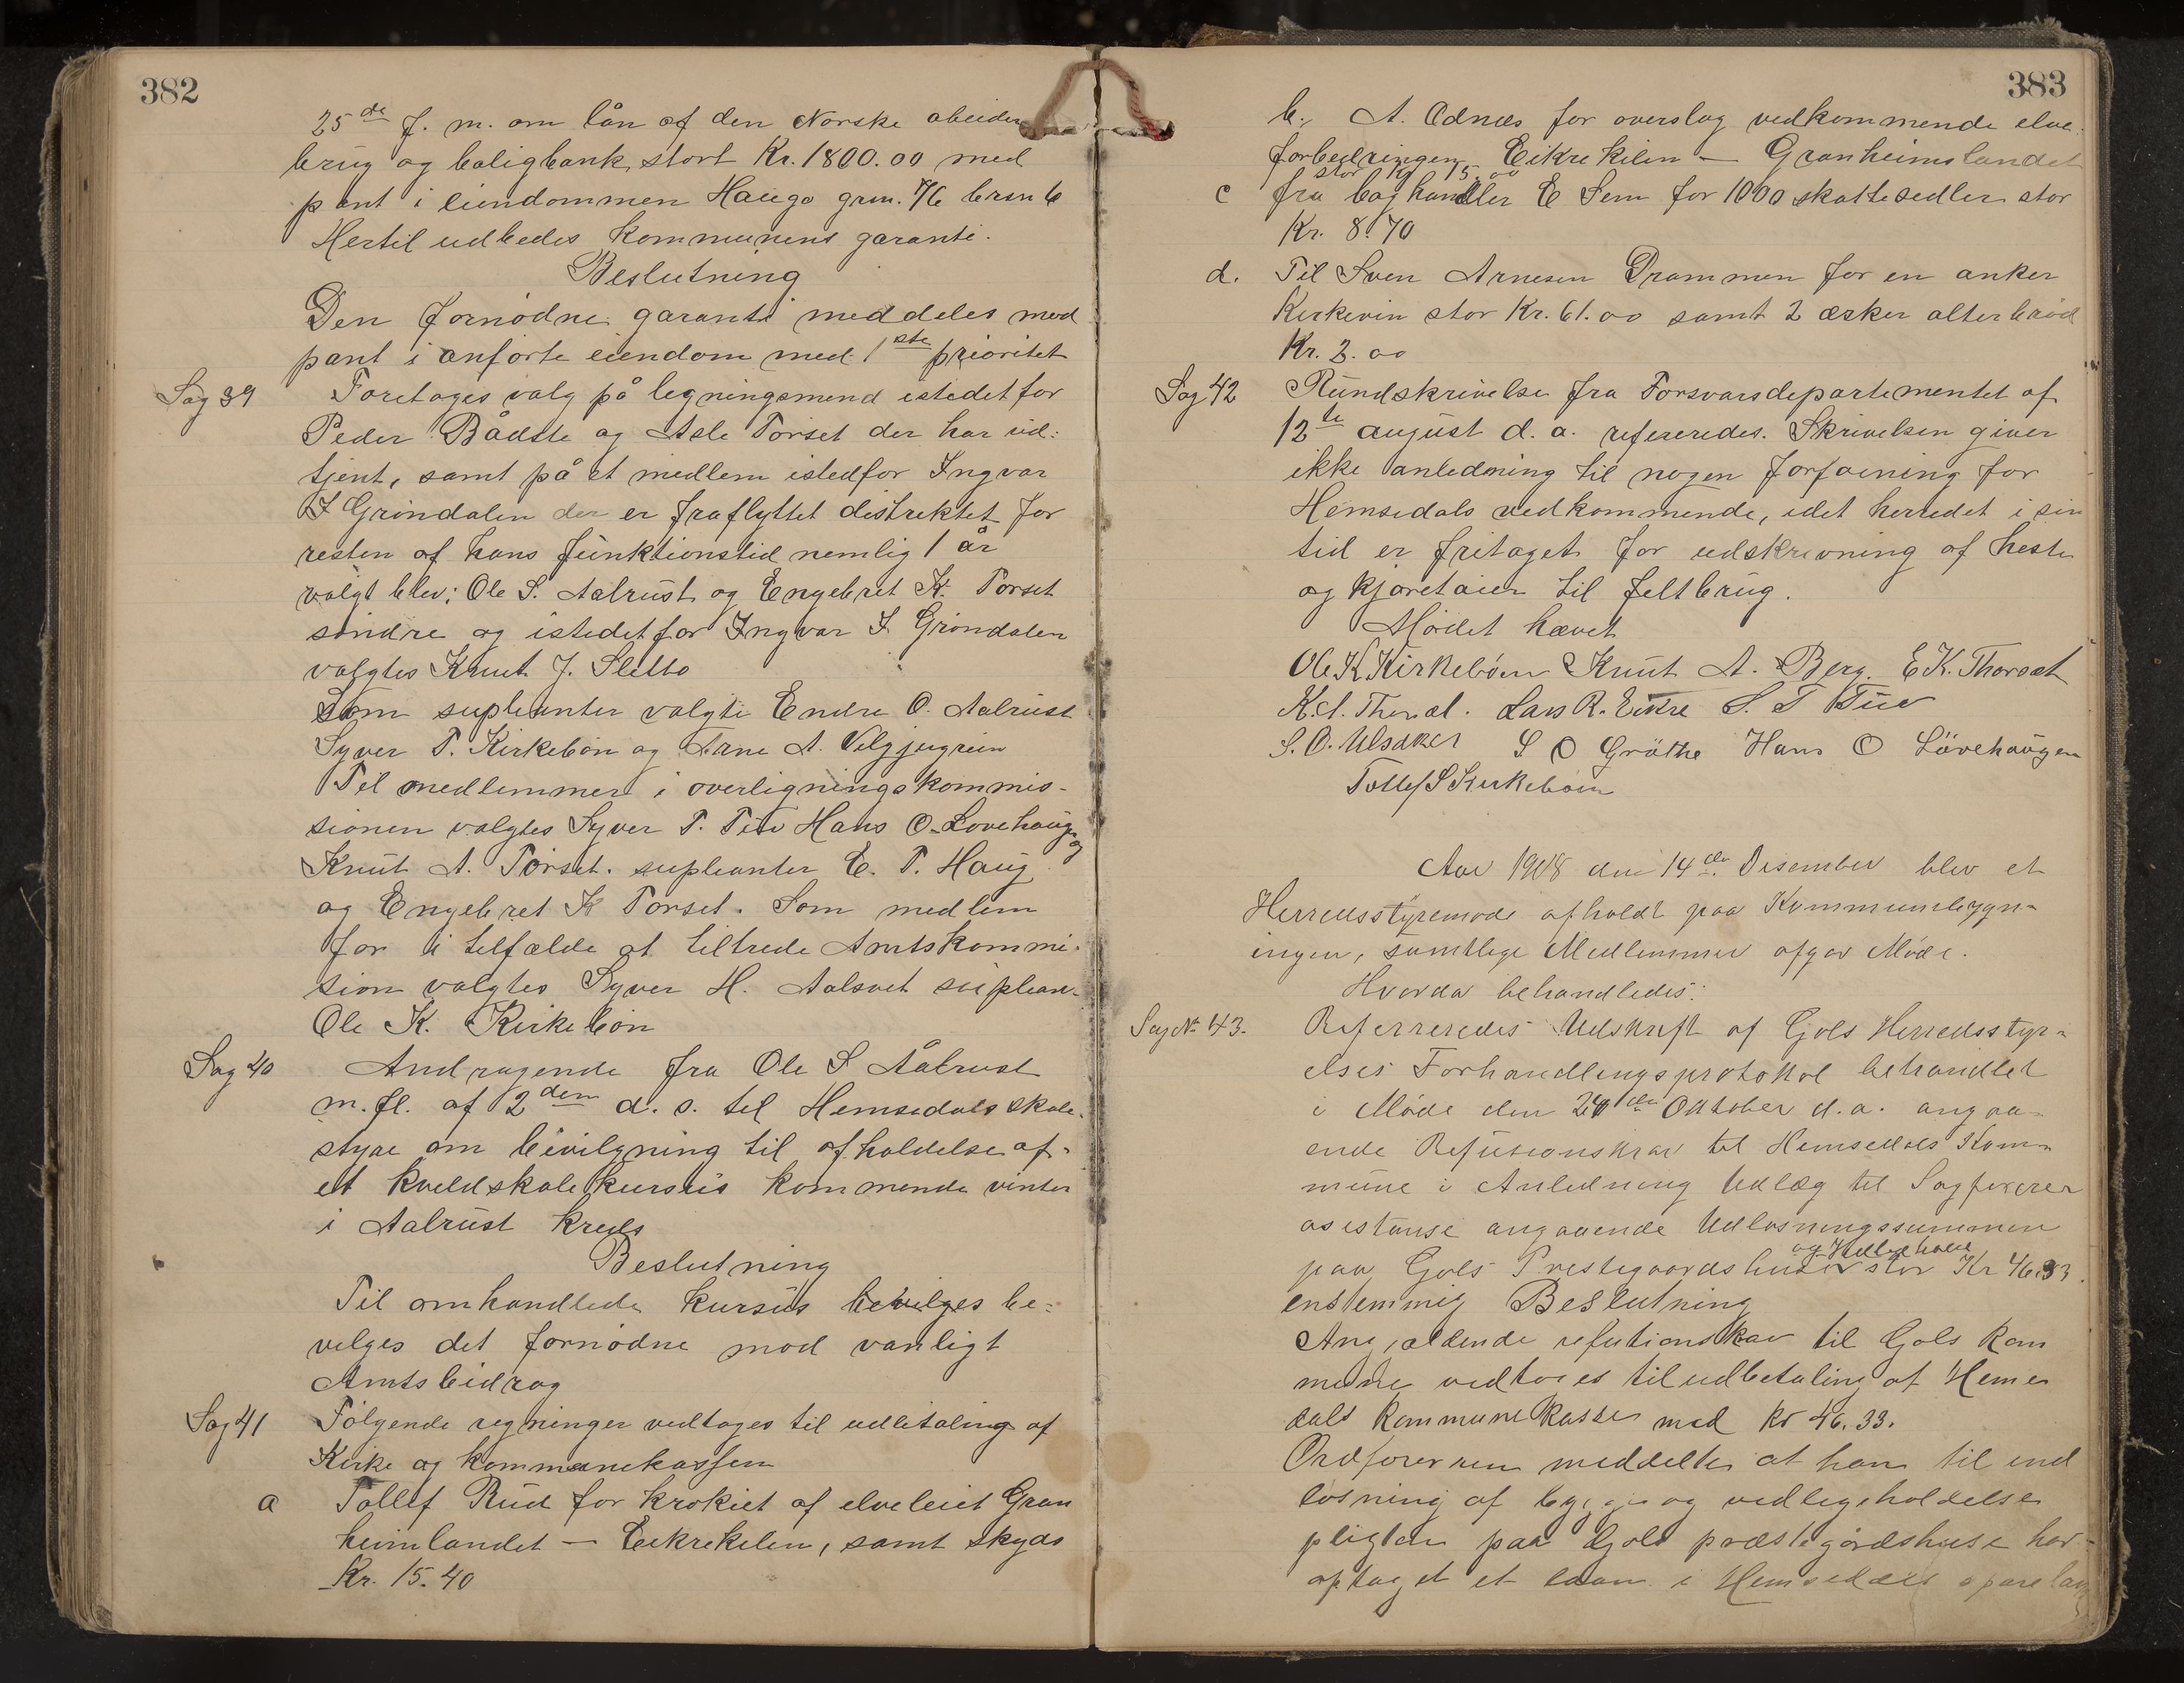 382
25de f. m. om lån af den Norske abeider
brug og boligbank stort Kr. 1800.00 med
pant i eiendommen Hauga grm. 76 brsn 6
Hertil udbedes kommunens garanti.
Beslutning
Den fornødne garanti meddeles med
pant i anførte eiendom med 1ste prioritet
Sag 39 Foretages valg på legningsmend istedetfor
Peder Bådste og Asle Torset der har ud:
tjent, samt på et medlem istedfor Ingvar
I Grøndalen der er fraflyttet distriktet for
resten af hans funktionstid nemlig 1 år
valgt blev: Ole S. Aalrust og Engebret K. Torset
søndre og istedetfor Ingvar I Grøndalen
valgtes Knut J. Sletto
Som supleanter valgte Endre O. Aalrust
Syver T. Kirkebøn og Arne A.
Til medlemmer i overligningskommis-
sionen valgtes Syver T. Tuv Hans O. Løvehaug og
Knut A. Torset. supleanter E. T. Haug
og Engebret K Torset. Som medlem
for i tilfælde at tiltrede Amtskommi-
sion valgtes Syver H. Aalsvet suplean-
Ole K. Kirkebøn
Sag 40 Andragende fra Ole S Ålrust
m. fl. af 2den d. s. til Hemsedals skole-
styre om bevilgning til afholdelse af
et kveldskolekursus kommende vinter
i Aalrust kreds
Beslutning
Til omhandlede kursus bevilges be-
vilges det fornødne mod vanligt
Amtsbidrag
Sag 41 Følgende regninger vedtages til udbetaling af
Kirke og kommunekassen
a Tollef Rud for krokiet af elveleiet Gran
heimlandet — Eikrekilen, samt skyds
Kr. 15.40
383
b. A. Ødnæs for overslag vedkommende elve-
forbedringen, Eikrekilen — Granheimslandet
stor kr 15.00
c fra boghandler E Sem for 1000 skattesedler stor
Kr. 8.70
d. Til Sven Arnesen Drammen for en anker
Kirkevin stor Kr. 61.00 samt 2 æsker alterbrød
Kr. 2.00
Sag 42 Rundskrivelse fra Forsvarsdepartementet af
12te august d. a. refereredes. Skrivelsen giver
ikke anledning til nogen forføining for
Hemsedals vedkommende, idet herredet i sin
tid er fritaget for udskrivning af heste
og kjøretøier til feltbrug.
Mødet hævet
Ole K Kirkebøen Knut A. Berg. E K. Thorset
K. A. Thorset. Lars R. Eikre S. T Tuv
S. O. Ulsaker S O Grøthe Hans O Løvehaugen
Tollef S Kirkebøen
Aar 1908 den 14de Desember blev et
Herredsstyremøde afholdt paa Kommunebygn-
ingen, samtlige Medlemmer afgav Møde.
Hvorda behandledes:
Sag No 43. Referreredes Udskrift af Gols Herredsstyr-
elses Forhandlingsprotokol behandlet
i Møde den 24de Oktober d. a. angaa-
ende Refutionskrav til Hemsedals Kom-
mune i Anledning Udlæg til Sagfører
asistanse angaaende Udløsningssummen
paa Gols Prestegaardshuse og Vedligehold stor Kr 46.33.
enstemmig Beslutning
Angjældende refutionskav til Gols Kom
mune vedtages til udbetaling af Hemse
dals Kommunekasse med Kr 46.33.
Ordføreren meddelte at han til ind
løsning af bygge og vedligeholdelse
pligten paa Gols præstegårdshuse har
optaget et laan i Hemsedals sparebank